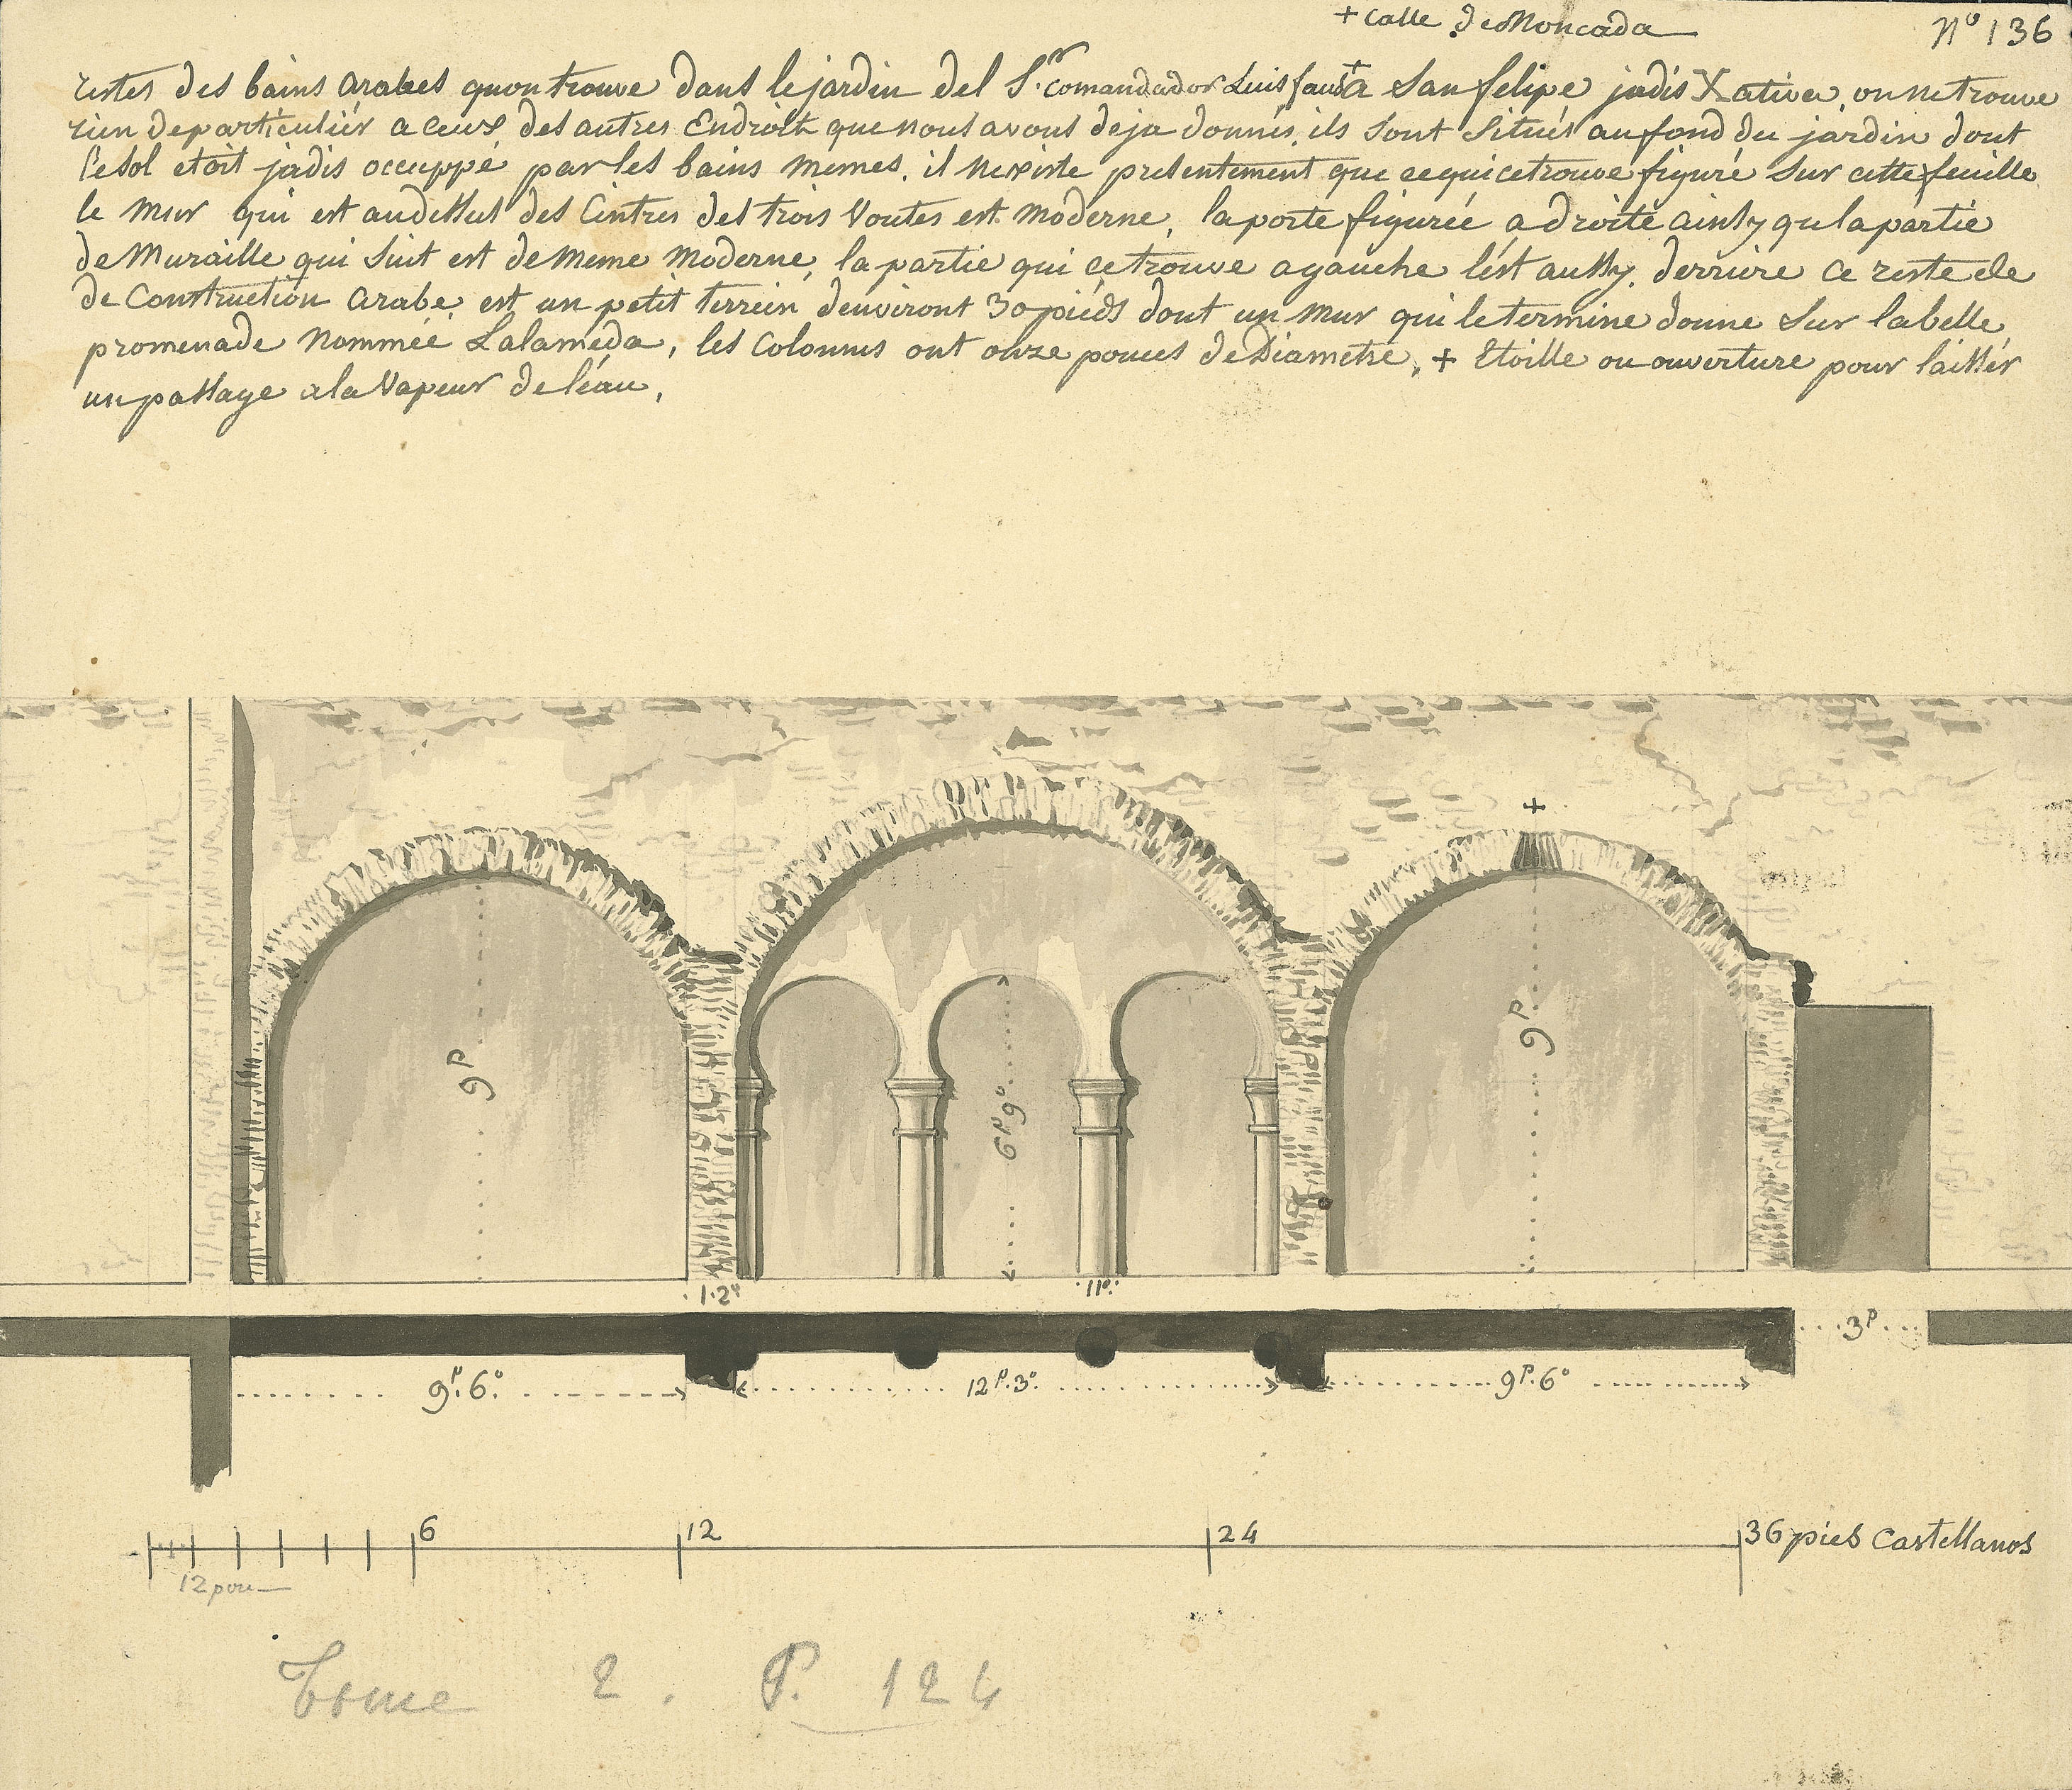 + calle de Moncada
Nº 136
restes des bains arabes quon trouve dans le jardin del S.ʳ comandador Luis faust + a San felipe jadis Xativa, on ne trouve
rien de particuliér a ceux des autres Endroits que nous avons deja donnés, ils sont situés au fond du jardin dont
le sol etoit jadis occuppé par les bains memes, il nexiste presentement que ce qui ce trouve figuré sur cette feuille
le mur qui est audessus des Cintres des trois Voutes est moderne, la porte figurée a droite ainsy qu la partie
de Muraille qui suit est de meme moderne, la partie qui ce trouve a gauche l'est aussy, derriere ce reste de
de Construction arabe est un petit terrein denviront 30 pieds dont un mur qui le termine donne sur la belle
promenade nommée Lalameda, les Colonnes ont onze pouces de Diametre, + Etoille ou ouverture pour laissér
un passage a la Vapeur de léau,
+
9ᴾ
6ᴾ 9º
9ᴾ
1·2º
11º
3ᴾ
9ᴾ·6º
12ᴾ·3º
9ᴾ·6º
6
12
24
36 pies Castellanos
12 pou
Tome 2. P. 124